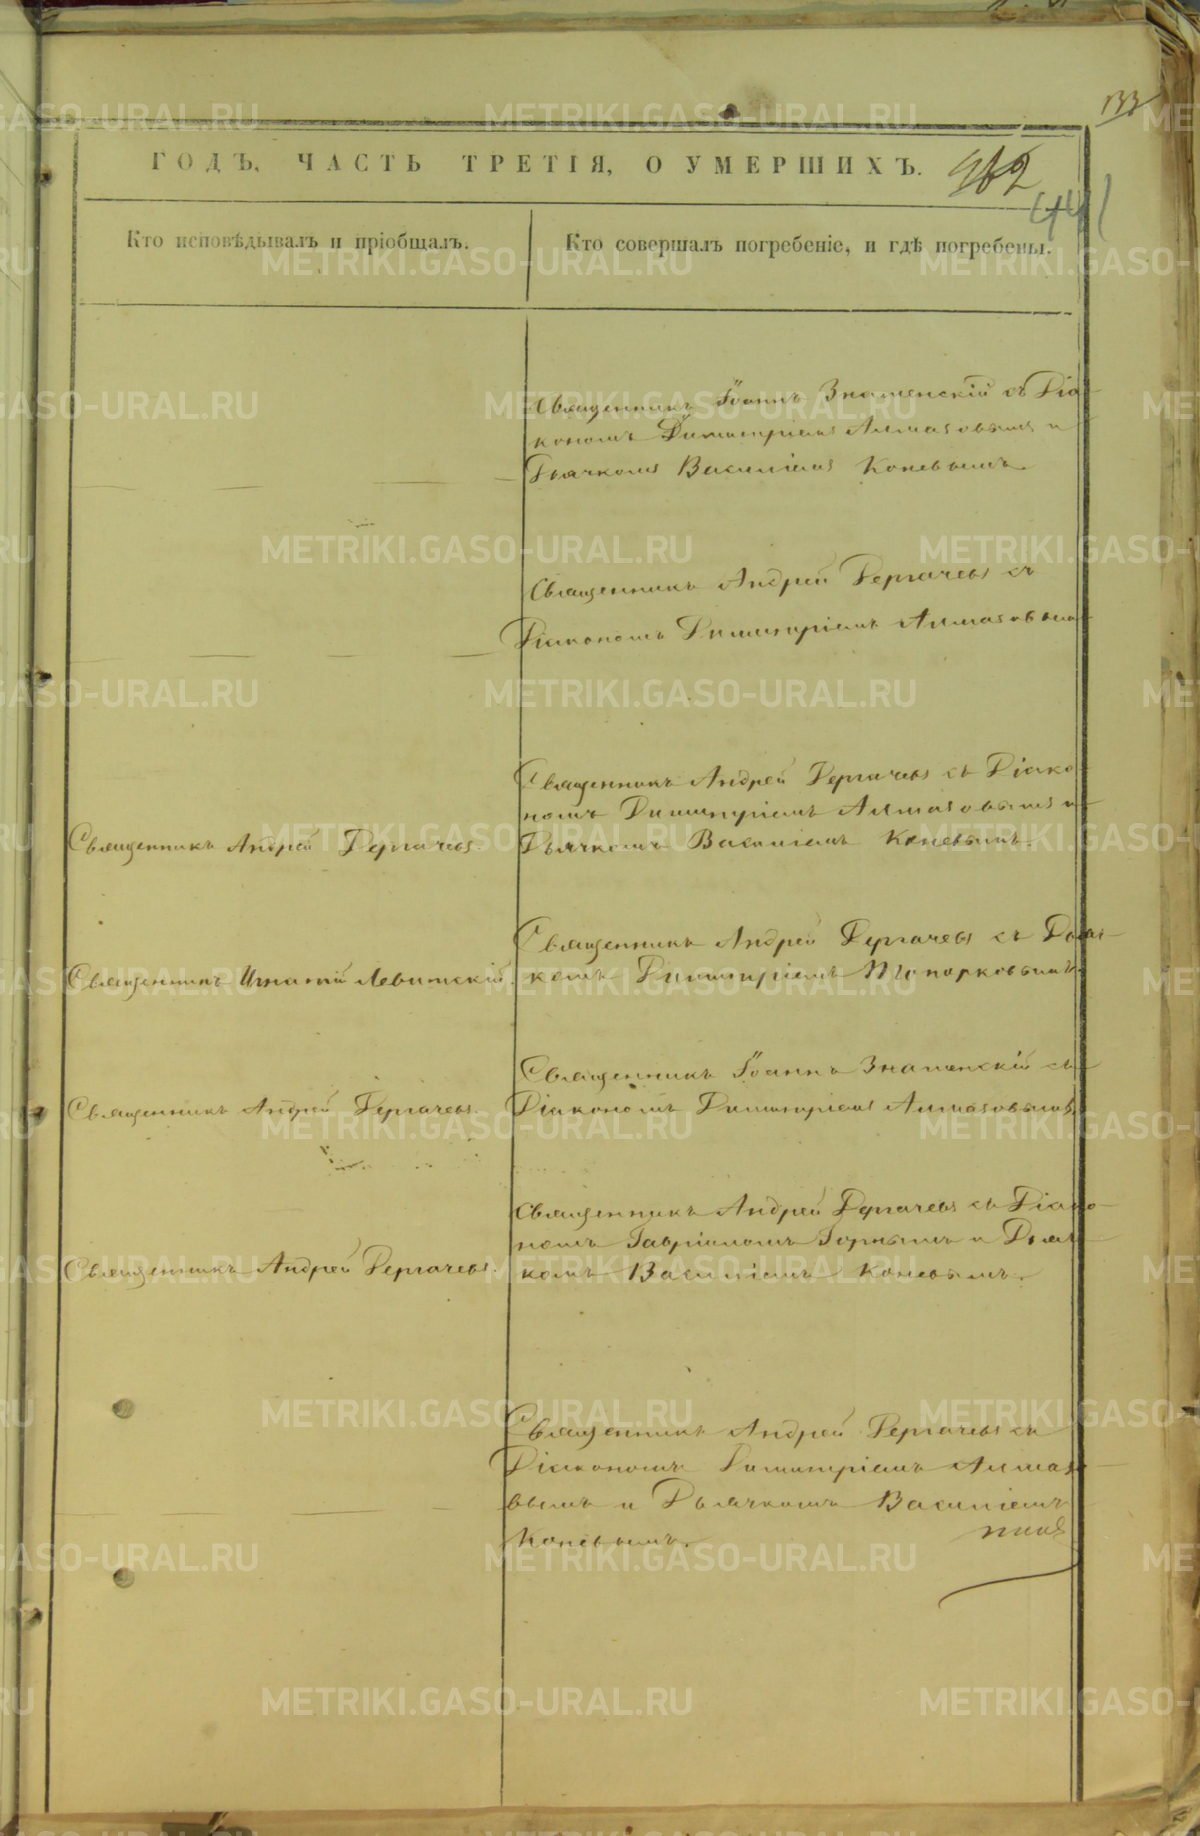 133
ГОДЪ, ЧАСТЬ ТРЕТІЯ, О УМЕРШИХЪ. 962
441
Кто исповѣдывалъ и пріобщалъ.
Кто совершалъ погребеніе, и гдѣ погребены.
Священникъ Іоаннъ Знаменскій съ Діа-
кономъ Димитріемъ Алмазовымъ и
Дьячкомъ Василіемъ Коневымъ.
Священникъ Андрей Дергачевъ съ
Діакономъ Димитріемъ Алмазовымъ
Священникъ Андрей Дергачевъ.
Священникъ Андрей Дергачевъ съ Діако-
номъ Димитріемъ Алмазовымъ и
Дьячкомъ Василіемъ Коневымъ.
Священникъ Игнатій Левитскій.
Священникъ Андрей Дергачевъ съ Дьяч-
комъ Димитріемъ Топорковымъ.
Священникъ Андрей Дергачевъ.
Священникъ Іоаннъ Знаменскій съ
Діакономъ Димитріемъ Алмазовымъ.
Священникъ Андрей Дергачевъ.
Священникъ Андрей Дергачевъ съ Діако-
номъ Гавріиломъ Горнымъ и Дьяч-
комъ Василіемъ Коневымъ.
Священникъ Андрей Дергачевъ съ
Діакономъ Димитріемъ Алмазо-
вымъ и Дьячкомъ Василіемъ
Коневымъ.
METRIKI.GASO-URAL.RU